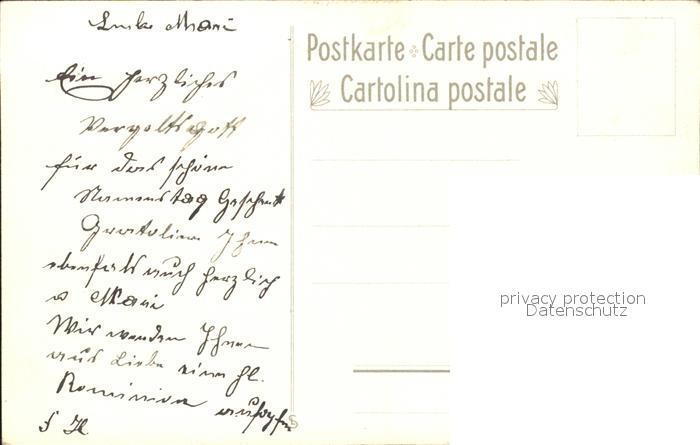 Liebe Mari
Ein herzliches
Vergeltsgott
für das schöne
Namenstag Geschenk
Gratoliere Ihnen
ebenfals auch herzlich
Mari
Wir werden Ihnen
aus Liebe eine hl.
aufopfern
Postkarte Carte postale
Cartolina postale
privacy protection
Datenschutz